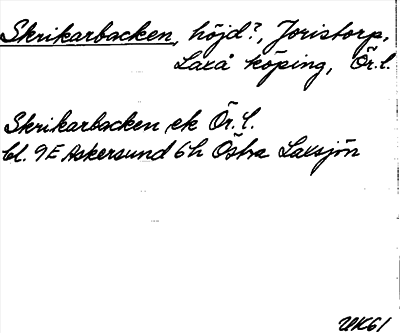 Skrikarbacken, höjd?, Joristorp,
Laxå köping, Ör. l.
Skrikarbacken ek Ör. l.
bl. 9E Askersund 6h Östra Laxsjön
UK61